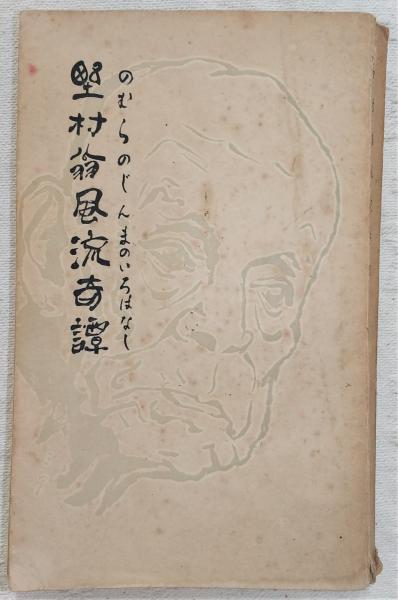 のむらのじんまのいろはなし
野村翁風流奇譚